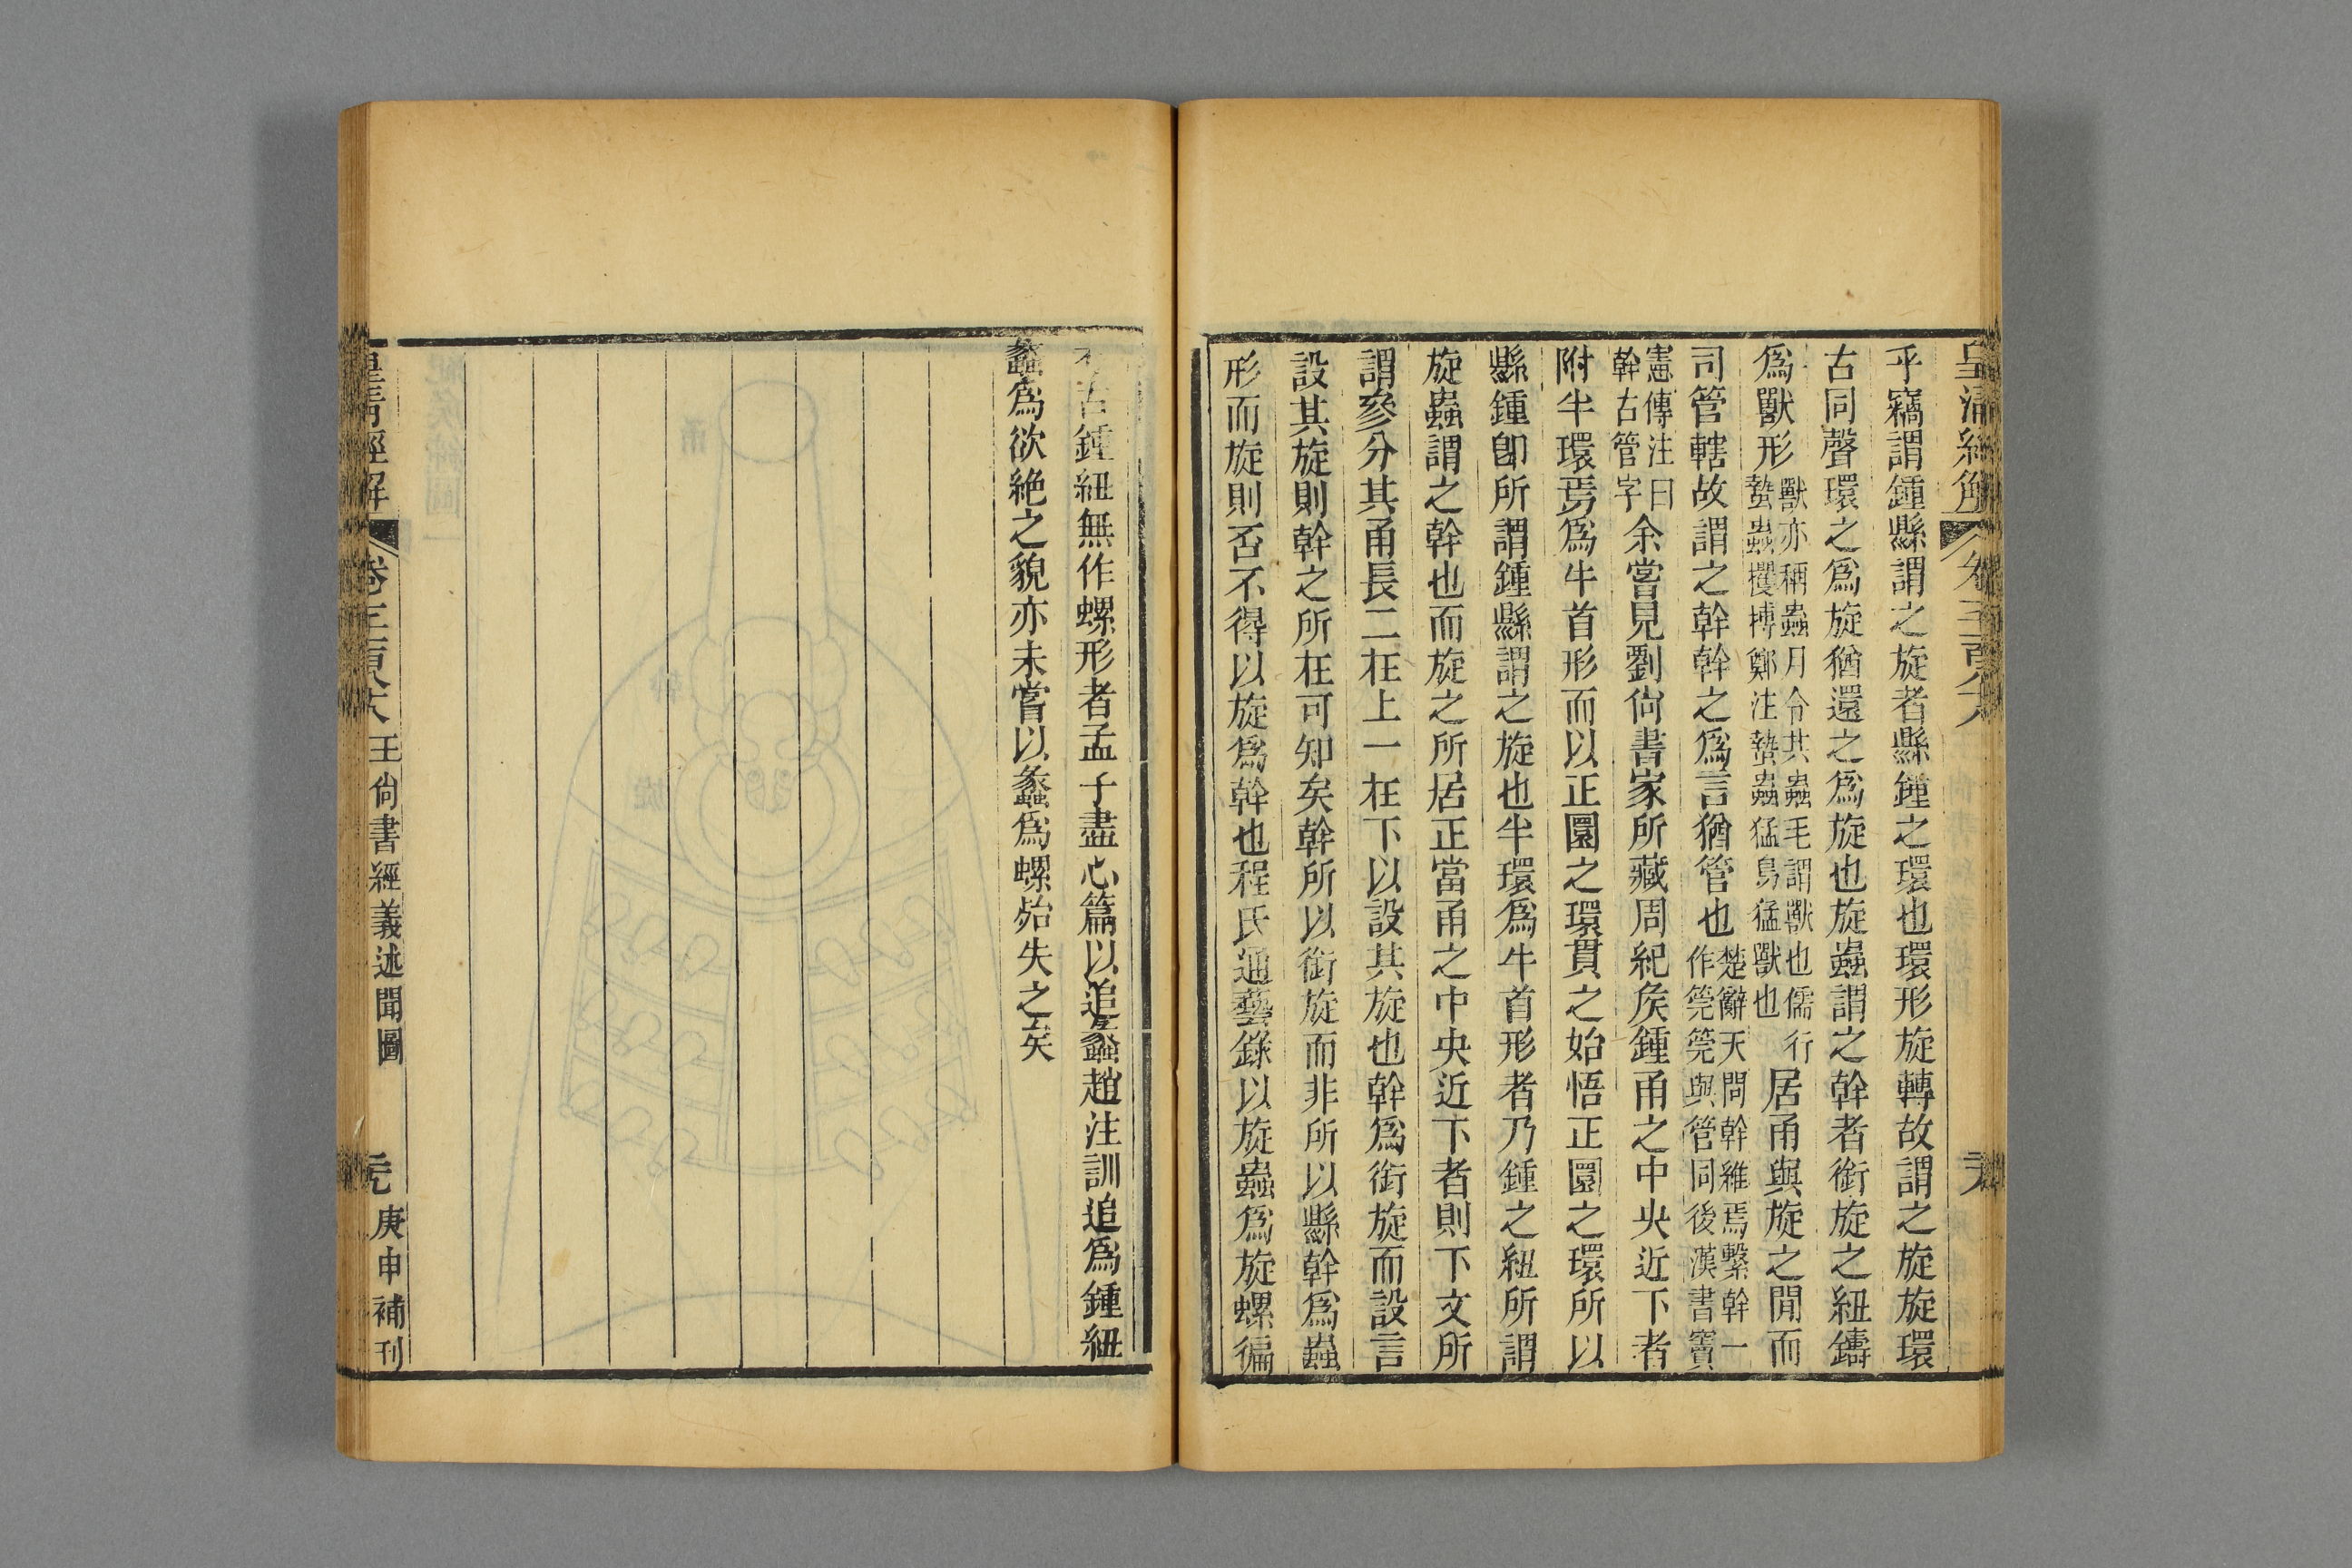 皇清經解
乎竊謂鍾縣謂之旋者縣鍾之環也環形旋轉故謂之旋旋環
古同聲環之爲旋猶還之爲旋也旋蟲謂之幹者銜旋之紐鑄
爲獸形獸亦稱蟲月令其蟲毛謂獸也儒行鷙蟲攫搏鄭注鷙蟲猛鳥猛獸也居甬與旋之閒而
司管轄故謂之幹幹之爲言猶管也楚辭天問幹維焉繫幹一作筦筦與管同後漢書竇
憲傳注曰幹古管字余嘗見劉尙書家所藏周紀矦鍾甬之中央近下者
附半環焉爲牛首形而以正圜之環貫之始悟正圜之環所以
縣鍾卽所謂鍾縣謂之旋也半環爲牛首形者乃鍾之紐所謂
旋蟲謂之幹也而旋之所居正當甬之中央近下者則下文所
謂參分其甬長二在上一在下以設其旋也幹爲銜旋而設言
設其旋則幹之所在可知矣幹所以銜旋而非所以縣幹爲蟲
形而旋則否不得以旋爲幹也程氏通藝錄以旋蟲爲旋螺徧
古鍾紐無作螺形者孟子盡心篇以追蠡趙注訓追爲鍾紐
蠡爲欲絕之貌亦未嘗以蠡爲螺殆失之矣
皇清經解 卷三百八 王尙書經義述聞圖 庚申補刊